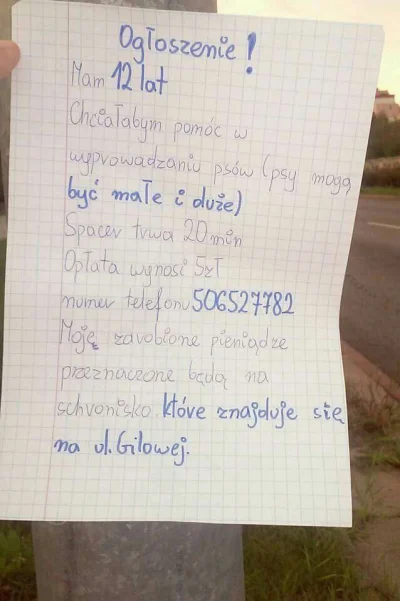 Ogłoszenie!
Mam 12 lat
Chciałabym pomóc w
wyprowadzaniu psów (psy mogą
być małe i duże)
Spacer trwa 20 min
Opłata wynosi 5zł
numer telefonu 506527782
Moję zarobione pieniądze
przeznaczone będą na
schronisko które znajduje się
na ul. Gilowej.